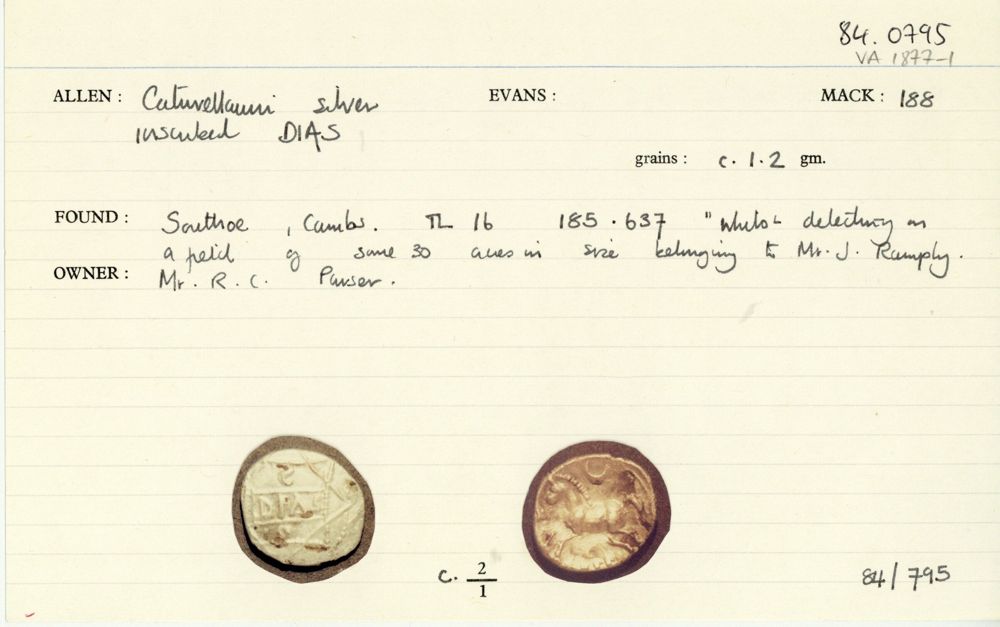 84.0795
VA 1877-1
ALLEN : Catuvellauni silver EVANS : MACK : 188
inscribed DIAS
grains : c. 1.2 gm.
FOUND : Southoe , Cambs. TL 16 185.637 "whilst detecting on
a field of some 30 acres in size belonging to Mr. J. Rumply.
OWNER : Mr. R. C. Purser.
DIAS
c. 2/1
84/795